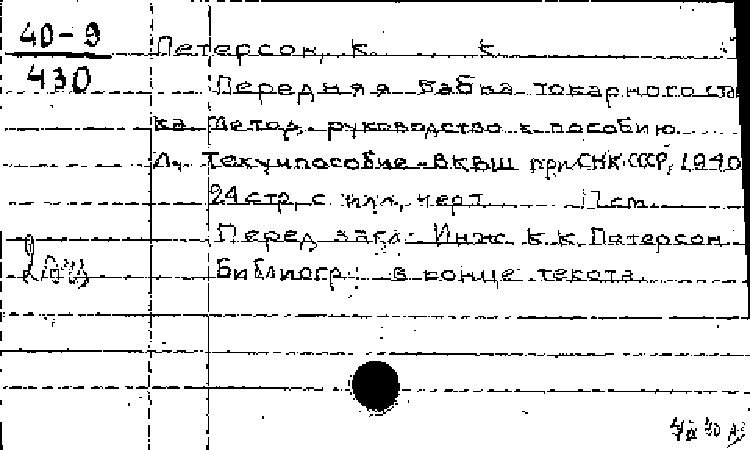 40-9
430
Петерсон, К. К.
Передняя бабка токарного стан
ка. Метод. руководство к пособию.
Л., Техучпособие - ВКВШ при СНК СССР, 1940
24 стр., с илл., черт. 17 см.
Перед загл.: Инж. К. К. Петерсон
Библиогр.: в конце текста.